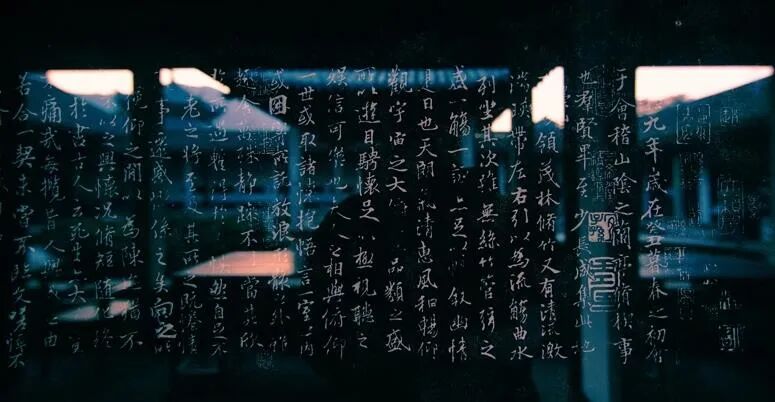 九年歲在癸丑暮春之初會
于會稽山陰之蘭亭脩稧事
也群賢畢至少長咸集此地
領茂林脩竹又有清流激
湍映帶左右引以為流觴曲水
列坐其次雖無絲竹管弦之
盛一觴一詠亦足以暢敘幽情
是日也天朗氣清惠風和暢仰
觀宇宙之大品類之盛
所以遊目騁懷足以極視聽之
娛信可樂也夫人之相與俯仰
一世或取諸懷抱悟言一室之內
或因寄所託放浪形骸之外雖
趣舍萬殊靜躁不同當其欣
所遇暫得於己快然自足不
老之將至及其所之既惓情
事遷感慨係之矣向之所
俛仰之閒以為陳迹猶不
不以之興懷況脩短隨化終
於盡古人云死生亦大矣豈
不痛哉每攬昔人興感之由
若合一契未嘗不臨文嗟悼不